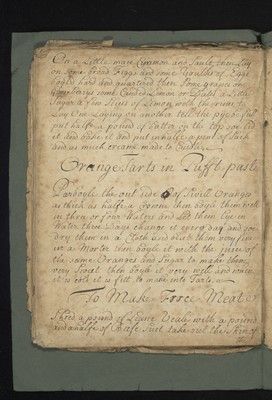 On a Little mace Cinamon and Sault then Lay
on some bread Foggs and some youlks of Eggs
boyled hard and quartered then some grapes or
Gooseberrys some Candid Lemon or Sitorn a Little
Sugar a few slices of Lemon with the rine So
Lay One Laying on another till the pye be full
put halfe a pound of butter on the top soe Lid
it and bake it and put in halfe a pint of Sack
and as much creame made to Custar
Orange Tarts in Pufft paste
Pardoyle the out side of Sivill Oranges
as thick as halfe a Crowne then boyle them
in three or four Waters and Let them Lye in
Water three Days change it every day and soe
dry them in a Cloth and beate them very fine
in a Morter then boyle it with the juice of
the same Oranges and Sugar to make them
very Sweet then boyle it very well and when
it is cold it is fitt to make into Tarts
To Make Force Meate
Shred a pound of Leane Veale with a pound
and a halfe of Beife Suet take out the skin of